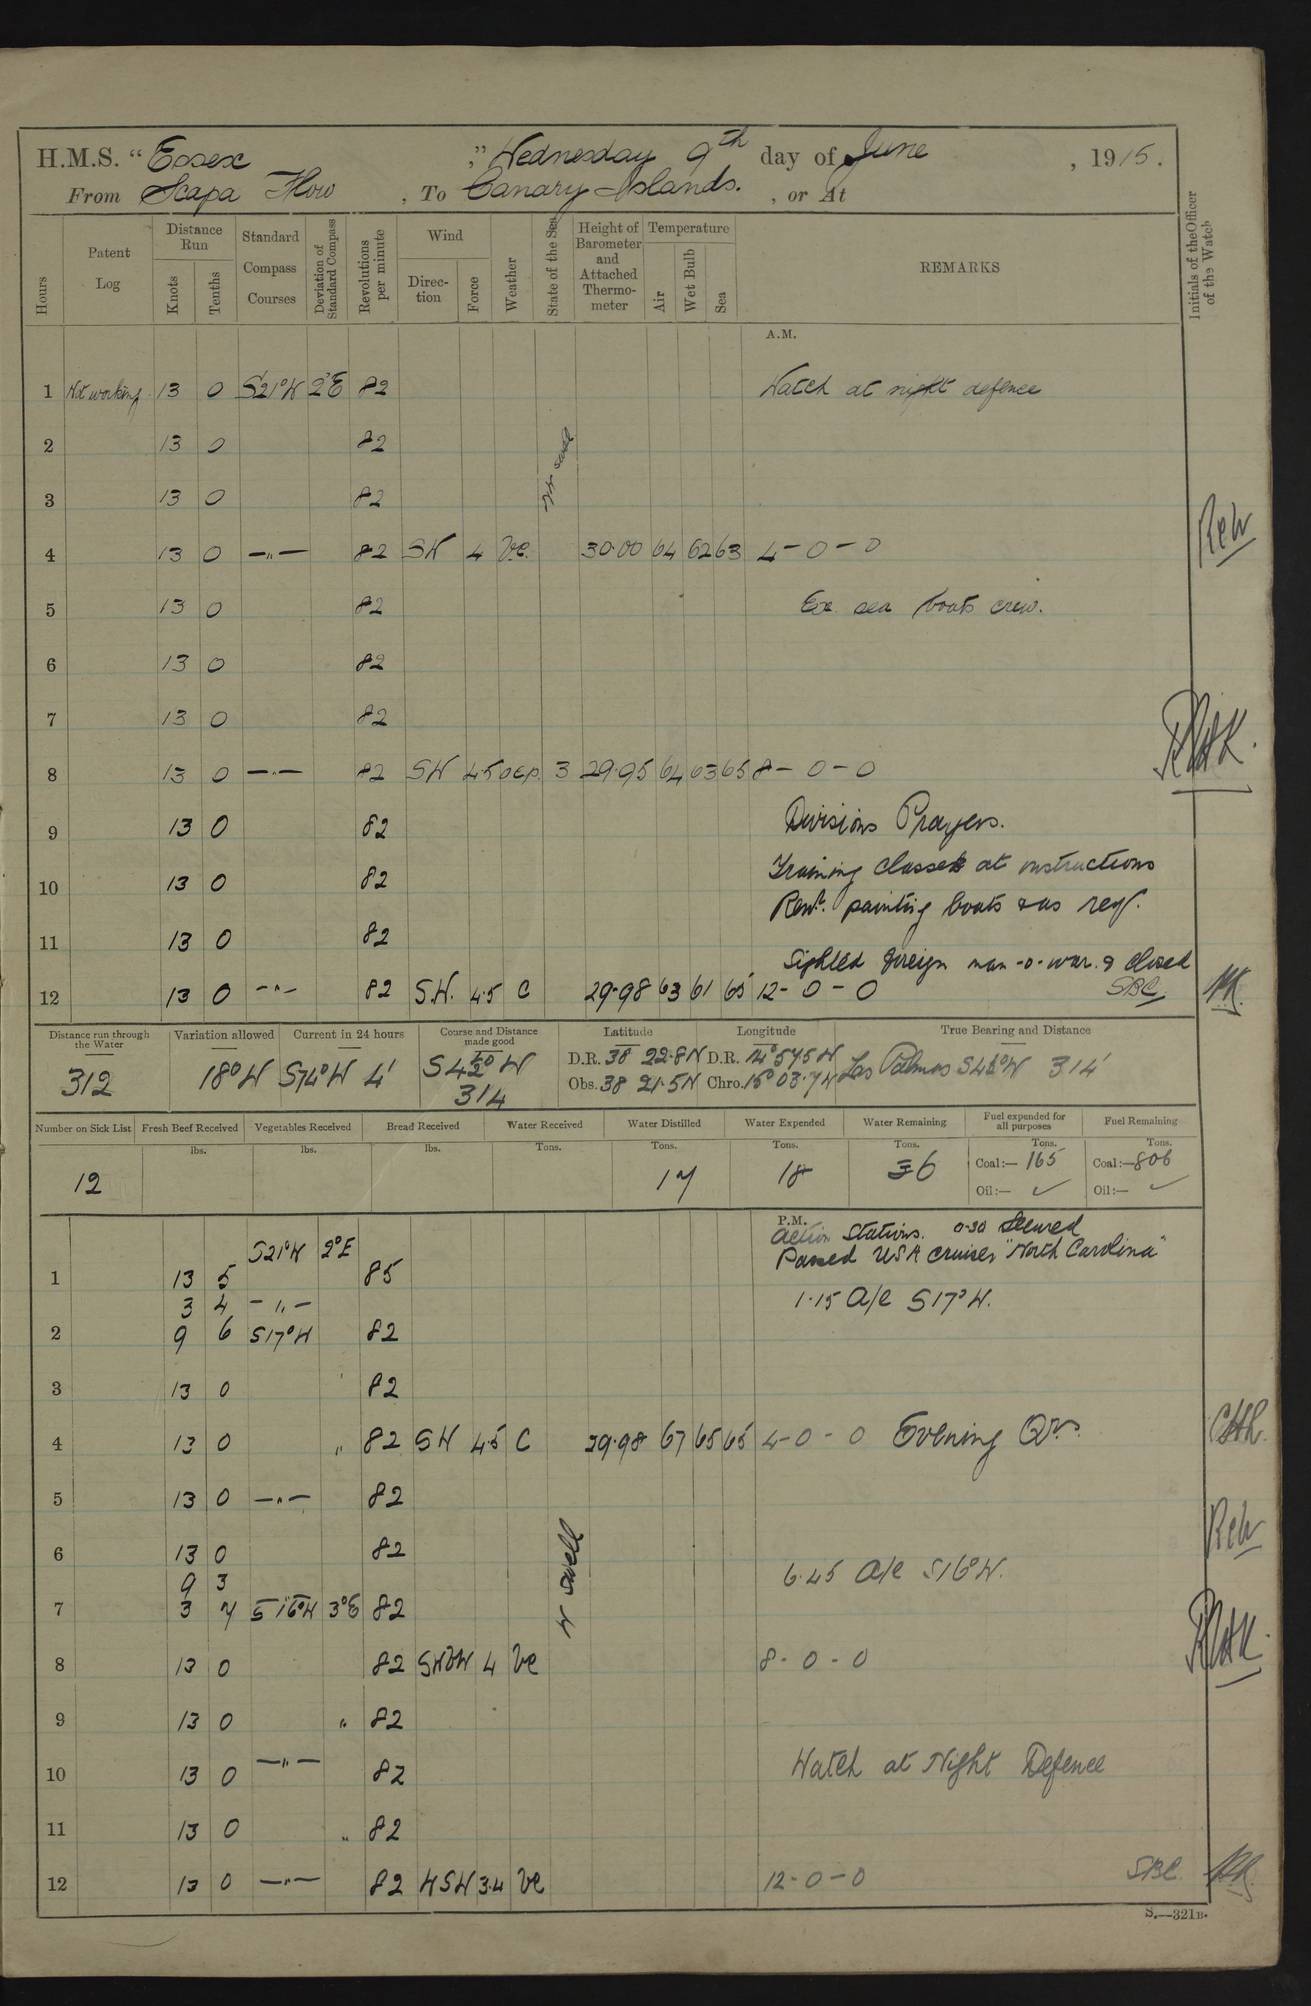 H.M.S. "Essex ," Wednesday 9th day of June , 1915.
From Scapa Flow , To Canary Islands. , or At
Hours Patent Log Distance Run Knots Tenths Standard Compass Courses Deviation of Standard Compass Revolutions per minute Wind Direction Force Weather State of the Sea Height of Barometer and Attached Thermometer Temperature Air Wet Bulb Sea REMARKS Initials of the Officer of the Watch
A.M.
1 Not working 13 0 S21°W 2°E 82 Watch at night defence
2 13 0 82
3 13 0 82
swell
4 13 0 —"— 82 SW 4 bc. 30.00 64 62 63 4-0-0
5 13 0 82 Ex. sea boats crew.
6 13 0 82
7 13 0 82
8 13 0 —"— 82 SW 4.5 ocp. 3 29.95 64 63 65 8-0-0
9 13 0 82 Divisions Prayers.
Training classes at instructions
10 13 0 82
painting boats & as req.
11 13 0 82
Sighted foreign man-o-war. & closed
12 13 0 —"— 82 SW. 4.5 C 29.98 63 61 65 12-0-0 SBC
Distance run through the Water Variation allowed Current in 24 hours Course and Distance made good Latitude Longitude True Bearing and Distance
312 18°W S74°W 4' S42°W 314 D.R. 38 22.8N D.R. 14° 57.5W Las Palmas 314'
Obs. 38 21.5N Chro. 15° 03.7W
Number on Sick List Fresh Beef Received Vegetables Received Bread Received Water Received Water Distilled Water Expended Water Remaining Fuel expended for all purposes Fuel Remaining
lbs. lbs. lbs. Tons. Tons. Tons. Tons. Tons. Tons.
12 17 18 36 Coal:— 165 Coal:— 806
Oil:— ✓ Oil:— ✓
P.M.
Action Stations. 0.30 Secured
S21°W 2°E Passed USA cruiser "North Carolina"
1 13 5 85
3 4 —"— 1.15 A/c S17°W.
2 9 6 S17°W 82
3 13 0 82
4 13 0 " 82 SW 4.5 C 29.98 67 65 65 4-0-0 Evening Qrs.
5 13 0 —"— 82
W swell
6 13 0 82
9 3 6.45 A/c S16°W.
7 3 7 S16°W 3°E 82
8 13 0 82 SWbW 4 bc 8-0-0
9 13 0 " 82
10 13 0 —"— 82 Watch at Night Defence
11 13 0 " 82
12 13 0 —"— 82 WSW 3.4 bc 12-0-0 SBC
S.—321B.